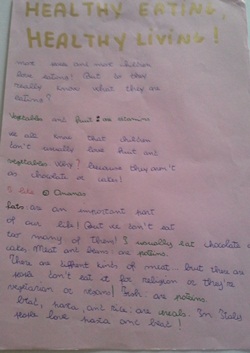 HEALTHY EATING,
HEALTHY LIVING!
more and more children
love eating! But do they
really know what they are
eating?
Vegetables and fruit: are vitamins
We all know that children
don't usually like fruit and
vegetables. Why? Because they aren't
as chocolate or cakes!
I like Ananas
Fats: are an important part
of our life! But we don't eat
too many of them! I usually eat chocolate or
cakes. Meat and ham: are proteins.
There are different kinds of meat... but there are
people don't eat it for religion or they're
vegetarian or vegans! Fish: are proteins.
Bread, pasta, and rice: are cereals. In Italy
people love pasta and bread!